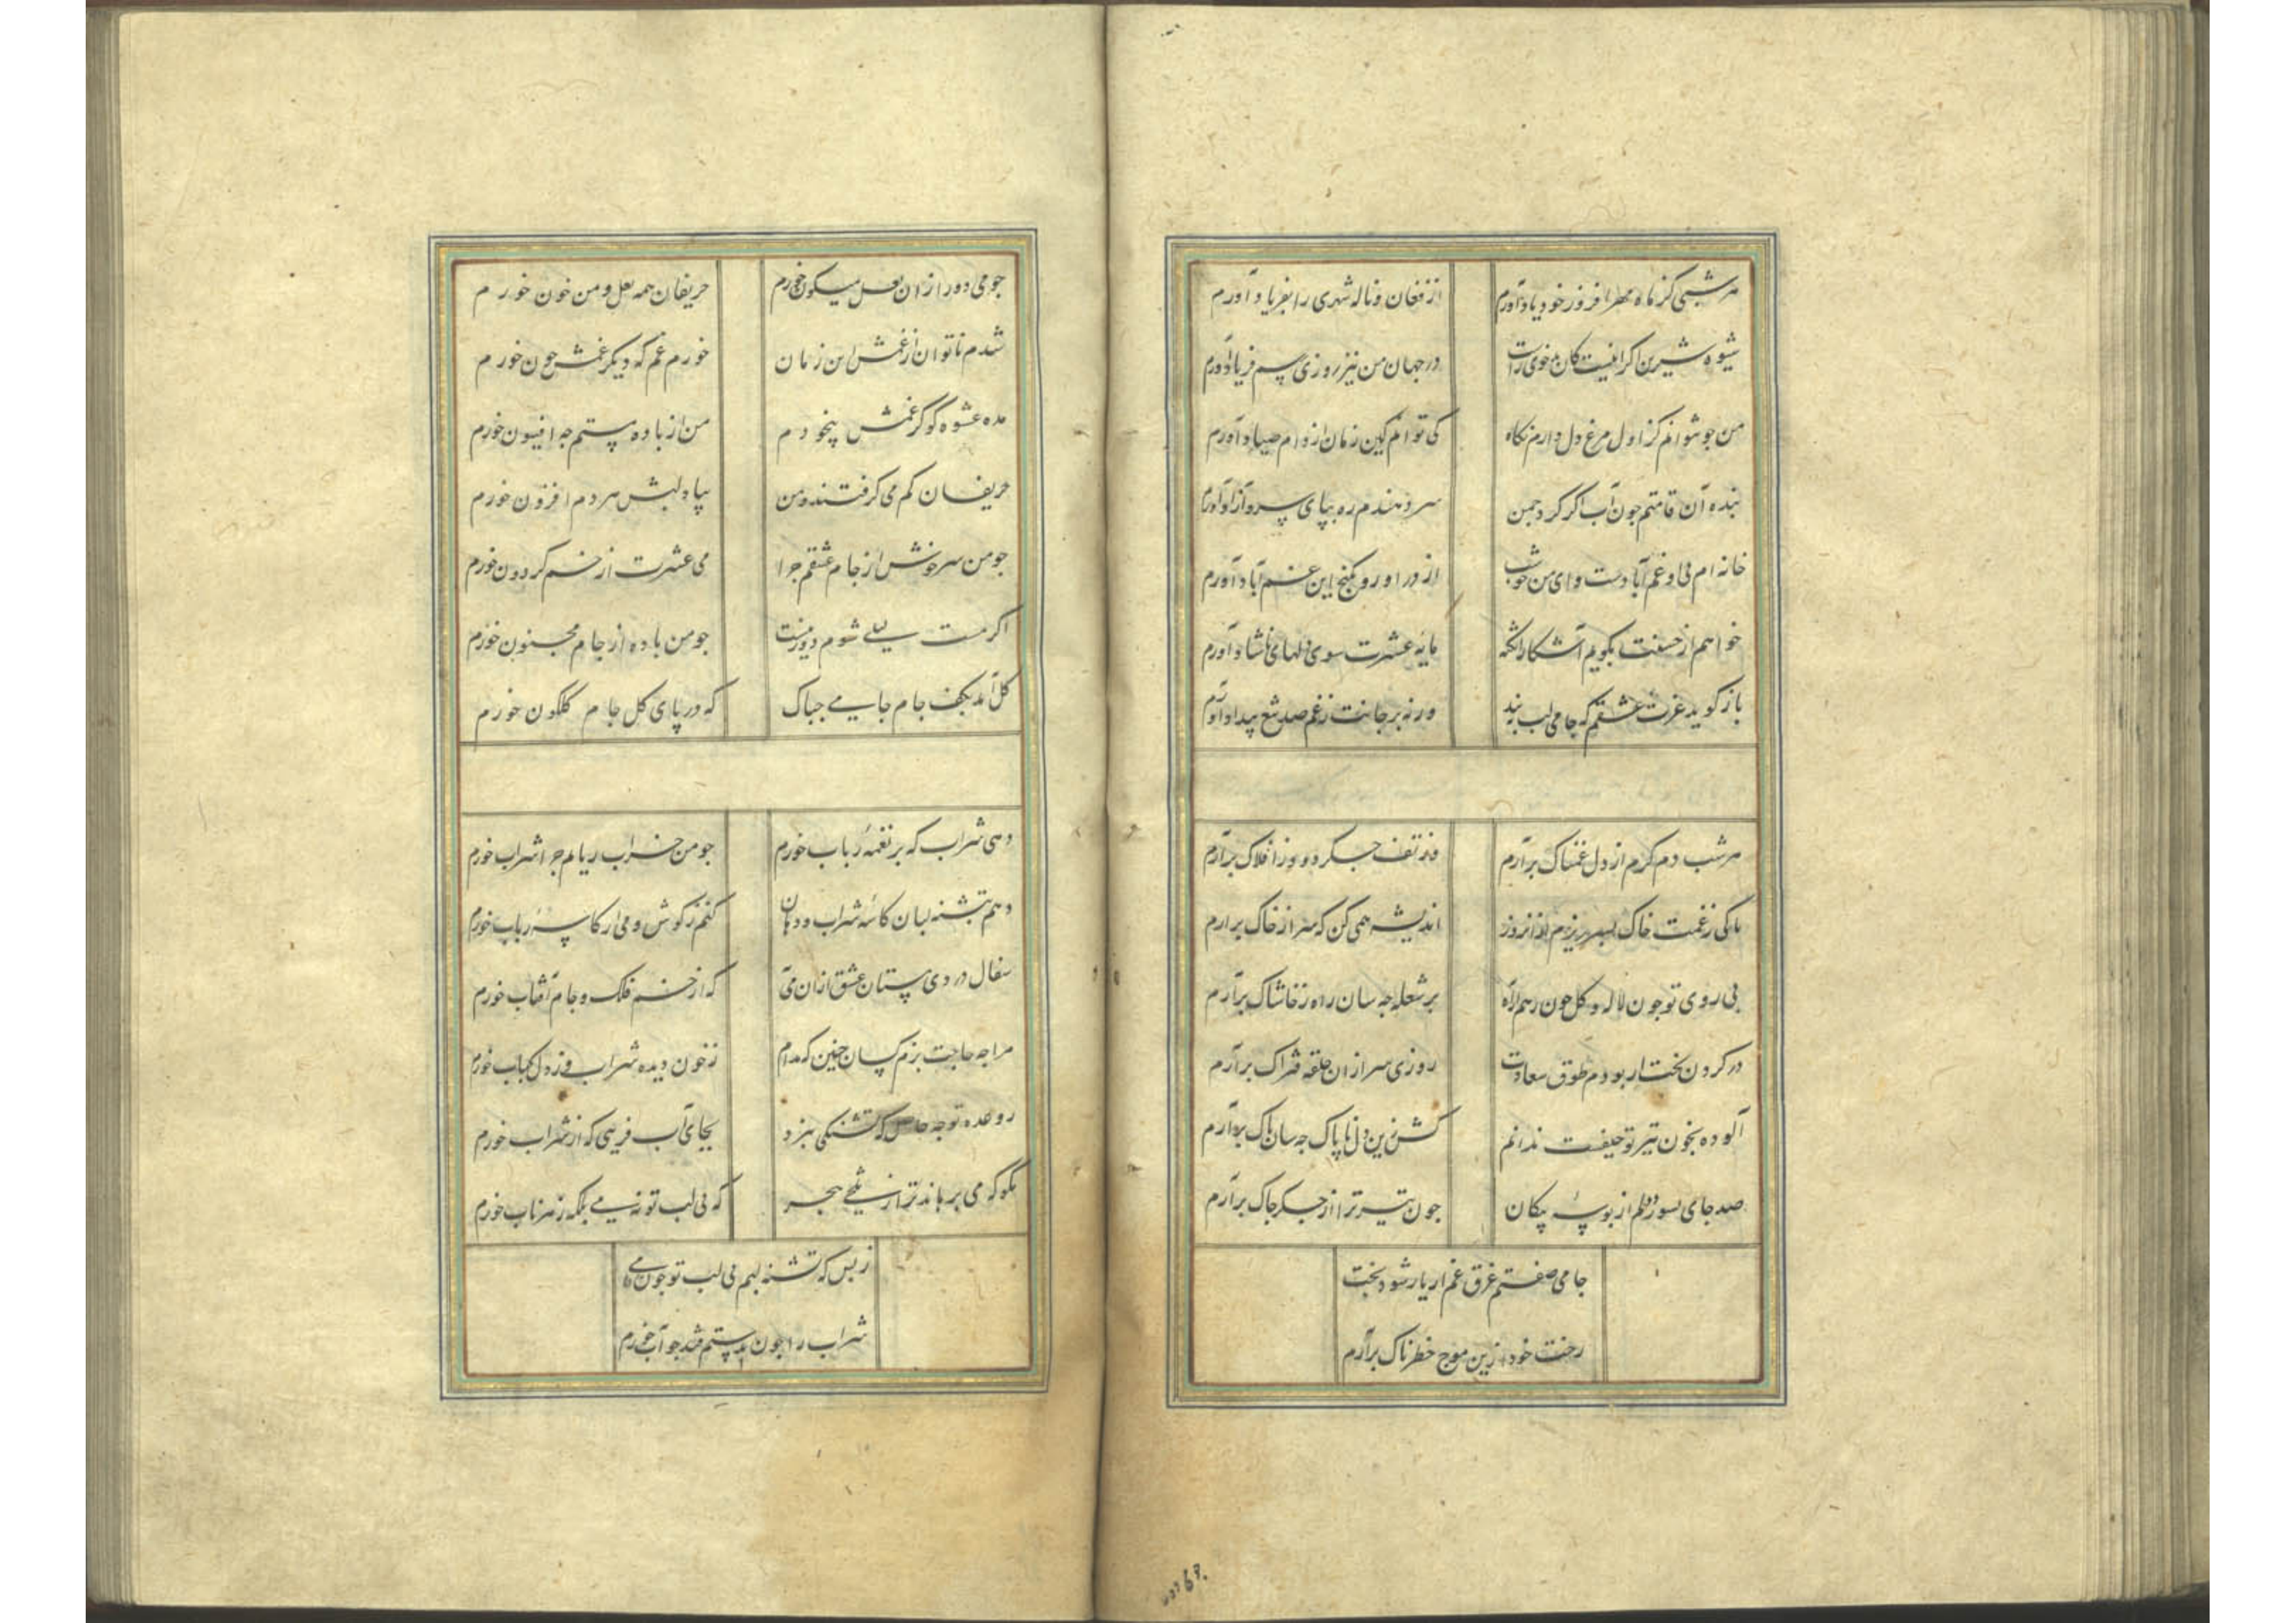 هر شبی کز ماه مهر افروز خود یاد آورم
از فغان و ناله شهری را بفریاد آورم
شیوه شیرین اگر اینست کان خوی راست
در جهان من نیز روزی رسم فرهاد آورم
من جو نتوانم کز اول مرغ دل دارم نگاه
کی توانم کین زمان از دام صیاد آورم
بنده آن قامتم جون آب اگر گرد جمن
سر دهندم ره بپای سرو آزاد آورم
خانه ام بی او غم آبادست وای من جو شب
از در او رو بکنج این غم آباد آورم
خواهم از حسنت بگویم آشکارا نکته
مایه عشرت سوی دلهای ناشاد آورم
باز گوید غیرت عشقم که جامی لب ببند
ورنه بر جانت ز غم صد تیغ بیداد آورم
هر شب دم گرم از دل غمناک برآرم
وز تف جگر دود ز افلاک برآرم
تا کی ز غمت خاک بسر ریزم از آنروز
اندیشه همی کن که سر از خاک برارم
بی روی تو جون لاله و گل جون دهم راه
بر شعله جه سان راه ز خاشاک برآرم
در گردن بخت ار بودم طوق سعادت
روزی سر از ان حلقه فتراک برآرم
آلوده بخون تیر تو حیفست ندانم
کش زین دل ناپاک جه سان پاک برآرم
صد جای بسوزد دلم از بوسه پیکان
جون تیر ترا از جگر جاک برآرم
جامی صفتم غرق غم ار یار شود بخت
رخت خود ازین موج خطرناک برآرم
جو می دور از ان لعل میگون خورم
حریفان همه لعل و من خون خورم
شدم ناتوان از غمش این زمان
خورم غم که دیگر غمش جون خورم
مده عشوه گو کز غمش بیخودم
من از باده مستم جه افیون خورم
حریفان کم می گرفتند و من
بیاد لبش هر دم افزون خورم
جو من سرخوش از جام عشقم جرا
می عشرت از خم گردون خورم
اگر مست لیلی شوم دور نیست
جو من باده از جام مجنون خورم
گل آمد بکف جام جامی جه باک
که در پای گل جام گلگون خورم
دهی شراب که بر نغمه رباب خورم
جو من خراب ربابم جرا شراب خورم
دهم بتشنه لبان کاسه شراب و دهان
کنم ز گوش و می از کاسه رباب خورم
سفال دردی مستان عشق ازان می
که از خم فلک و جام آفتاب خورم
مرا جه حاجت بزم کسان جنین که مدام
ز خون دیده شراب و ز دل کباب خورم
ز وعده تو جه حاصل که تشنگی نبرد
بجای آب فریبی که از شراب خورم
مگو که می برهاند ترا ز تلخی هجر
که بی لب تو نه می بلکه زهر ناب خورم
ز بس که تشنه لبم بی لب تو جون جامی
شراب را جون بدستم فتد جو آب خورم